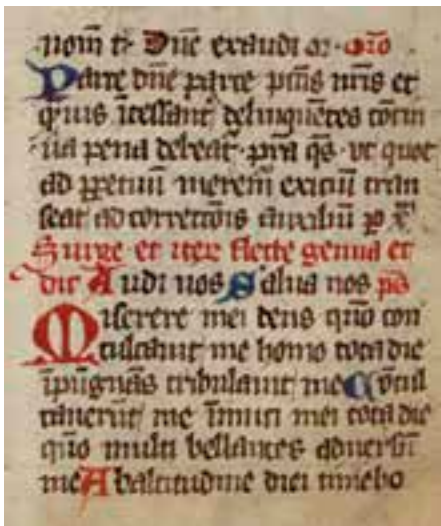 nom̄ t̄. Dn̄e exaudi or. or̄o
Parce dn̄e parce pc̄īs nr̄is et
qᵘis īcessant̄ delinquētes cōtin
ua pena debeat̄. pr̄a qs̄. vt quot
ad ꝑpetuū merent̄ exitiū tran
seat ad correctōis auxiliū ꝑ xᵐ
Surge et iteꝝ flecte genua et
dic Audi nos Salua nos ps̄
Miserere mei deus qm̄o con
culcauit me homo tota die
īpugnās tribulauit me Cōcul
cauerūt me īimici mei tota die
qm̄o multi bellantes aduersū
me Ab altitudīe diei timebo